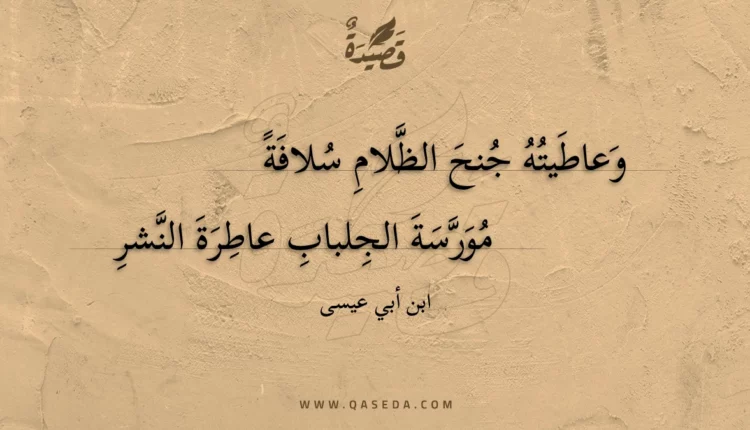 قَصِيدَةٌ
وَعاطَيتُهُ جُنحَ الظَّلامِ سُلافَةً
مُوَرَّسَةَ الجِلبابِ عاطِرَةَ النَّشرِ
ابن أبي عيسى
WWW.QASEDA.COM